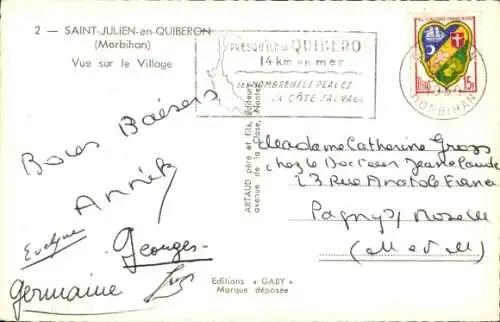 2 — SAINT-JULIEN-en-QUIBERON
(Morbihan)
Vue sur le Village
PRESQU'ILE de QUIBERO
14 km en mer
SES NOMBREUSES PLAGES
LA CÔTE SAUVAGE
MORBIHAN
15F
Bons Baisers
Annick
Evelyne
Georges
Germaine
ARTAUD père et fils, Éditeurs
avenue de la Close, Nantes
Madame Catherine Gross
chez le Docteur Jean Claude
23 Rue Anatole France
Pagny s/ Moselle
(M et M)
Editions « GABY »
Marque déposée